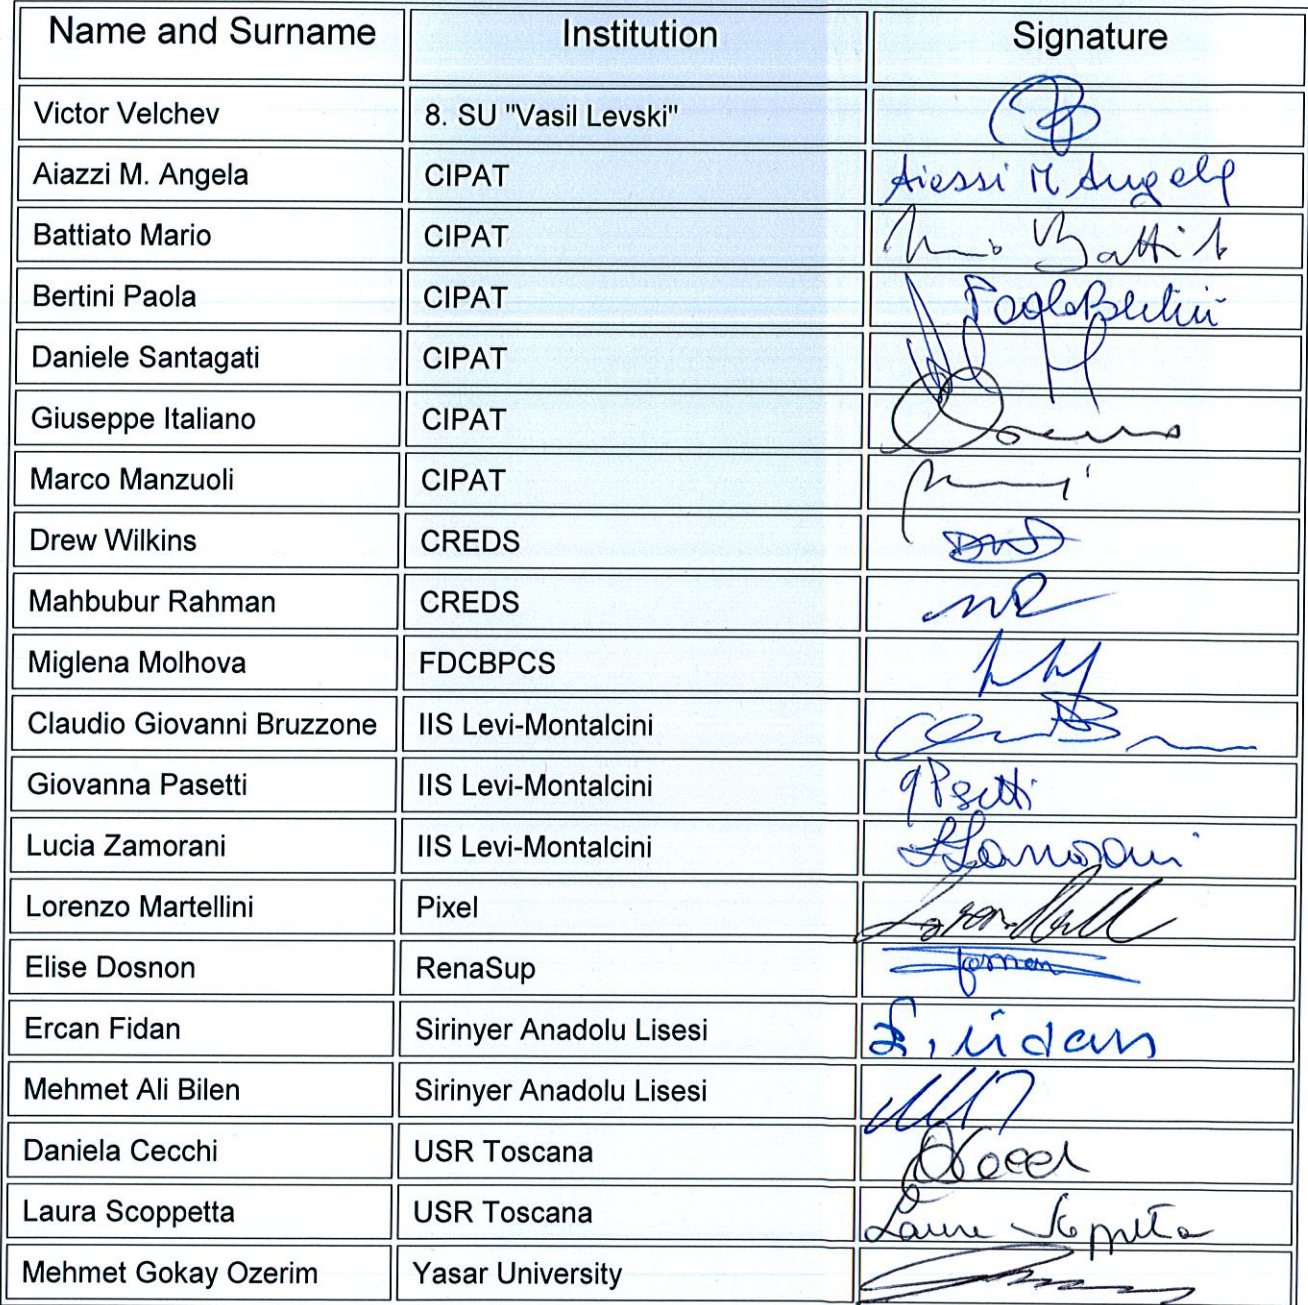 Name and Surname Institution Signature
Victor Velchev 8. SU "'Vasil Levski"
Aiazzi M. Angela CIPAT Aiessi M Angela
Battiato Mario CIPAT
Bertini Paola CIPAT Paola Bertini
Daniele Santagati CIPAT
Giuseppe Italiano CIPAT
Marco Manzuoli CIPAT
Drew Wilkins CREDS
Mahbubur Rahman CREDS MR
Miglena Molhova FDCBPCS
Claudio Giovanni Bruzzone IIS Levi-Montalcini
Giovanna Pasetti IIS Levi-Montalcini
Lucia Zamorani IIS Levi-Montalcini
Lorenzo Martellini Pixel
Elise Dosnon RenaSup
Ercan Fidan Sirinyer Anadolu Lisesi
Mehmet Ali Bilen Sirinyer Anadolu Lisesi
Daniela Cecchi USR Toscana
Laura Scoppetta USR Toscana
Mehmet Gokay Ozerim Yasar University